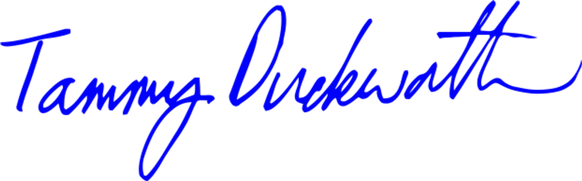 Tammy Duckworth